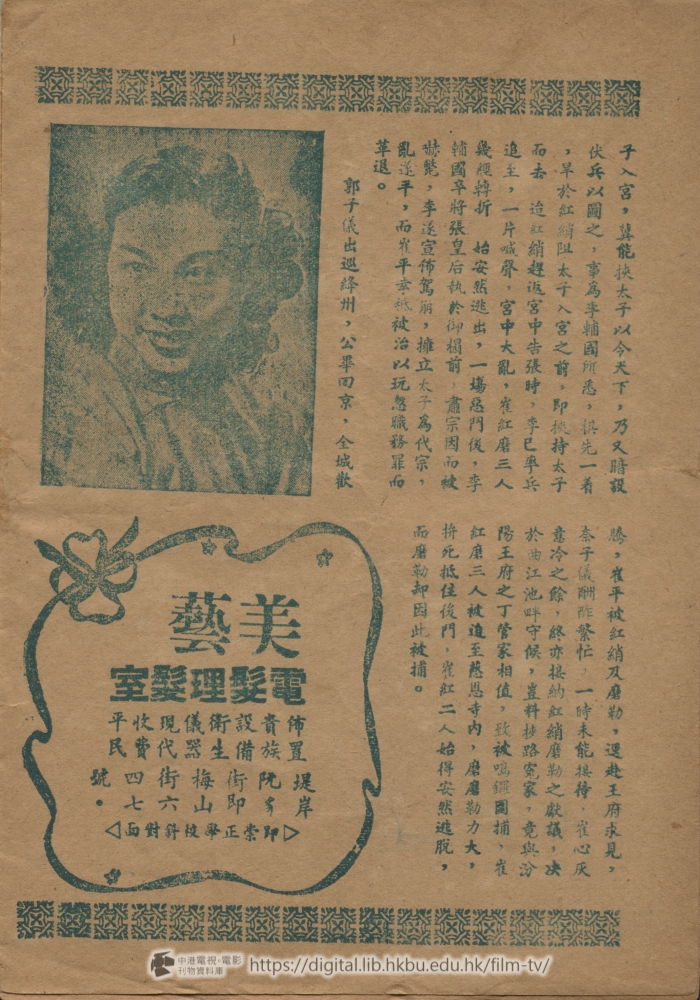 子入宮，冀能挾太子以令天下，乃又暗設
伏兵以圖之，事為李輔國所悉，俱先一着
，早於紅綃阻太子入宮之前，即挾持太子
而去，迨紅綃趕返宮中告張時，李已率兵
追至，一片喊聲，宮中大亂，崔紅磨三人
幾經轉折，始安然逃出，一場惡鬥後，李
輔國卒將張皇后執於御榻前，肅宗因而被
嚇斃，李遂宣佈駕崩，擁立太子為代宗，
亂遂平，而崔平幸祇被治以玩忽職務罪而
革退。
郭子儀出巡絳州，公畢回京，全城歡
騰，崔平被紅綃及磨勒，遝赴王府求見，
奈子儀酬酢繁忙，一時未能接待，崔心灰
意冷之餘，終亦接納紅綃磨勒之獻議，決
於曲江池畔守候，豈料狹路冤家，竟與汾
陽王府之丁管家相值，致被鳴鑼圍捕，崔
紅磨三人被追至慈恩寺內，磨磨勒力大，
拚死抵住後門，崔紅二人始得安然逃脫，
而磨勒卻因此被捕。
美藝
電髮理髮室
佈置貴族
設備衛生
儀器現代
收費平民
堤岸阮多街即梅山街六四七號。
▷即崇正學校斜對面◁
中港電視・電影
刊物資料庫
https://digital.lib.hkbu.edu.hk/film-tv/